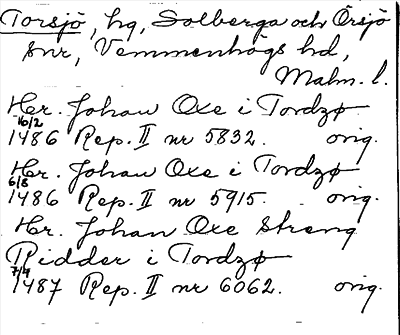 Torsjö, hg, Solberga och Örsjö
snr, Vemmenhögs hd,
Malm. l.
Her. Johan Oxe i Tordzø
16/2 1486 Rep. II nr 5832. orig.
Her. Johan Oxe i Tordzø
6/8 1486 Rep. II nr 5915. orig.
Her. Johan Oxe Streng
Ridder i Tordzø
7/4 1487 Rep. II nr 6062. orig.